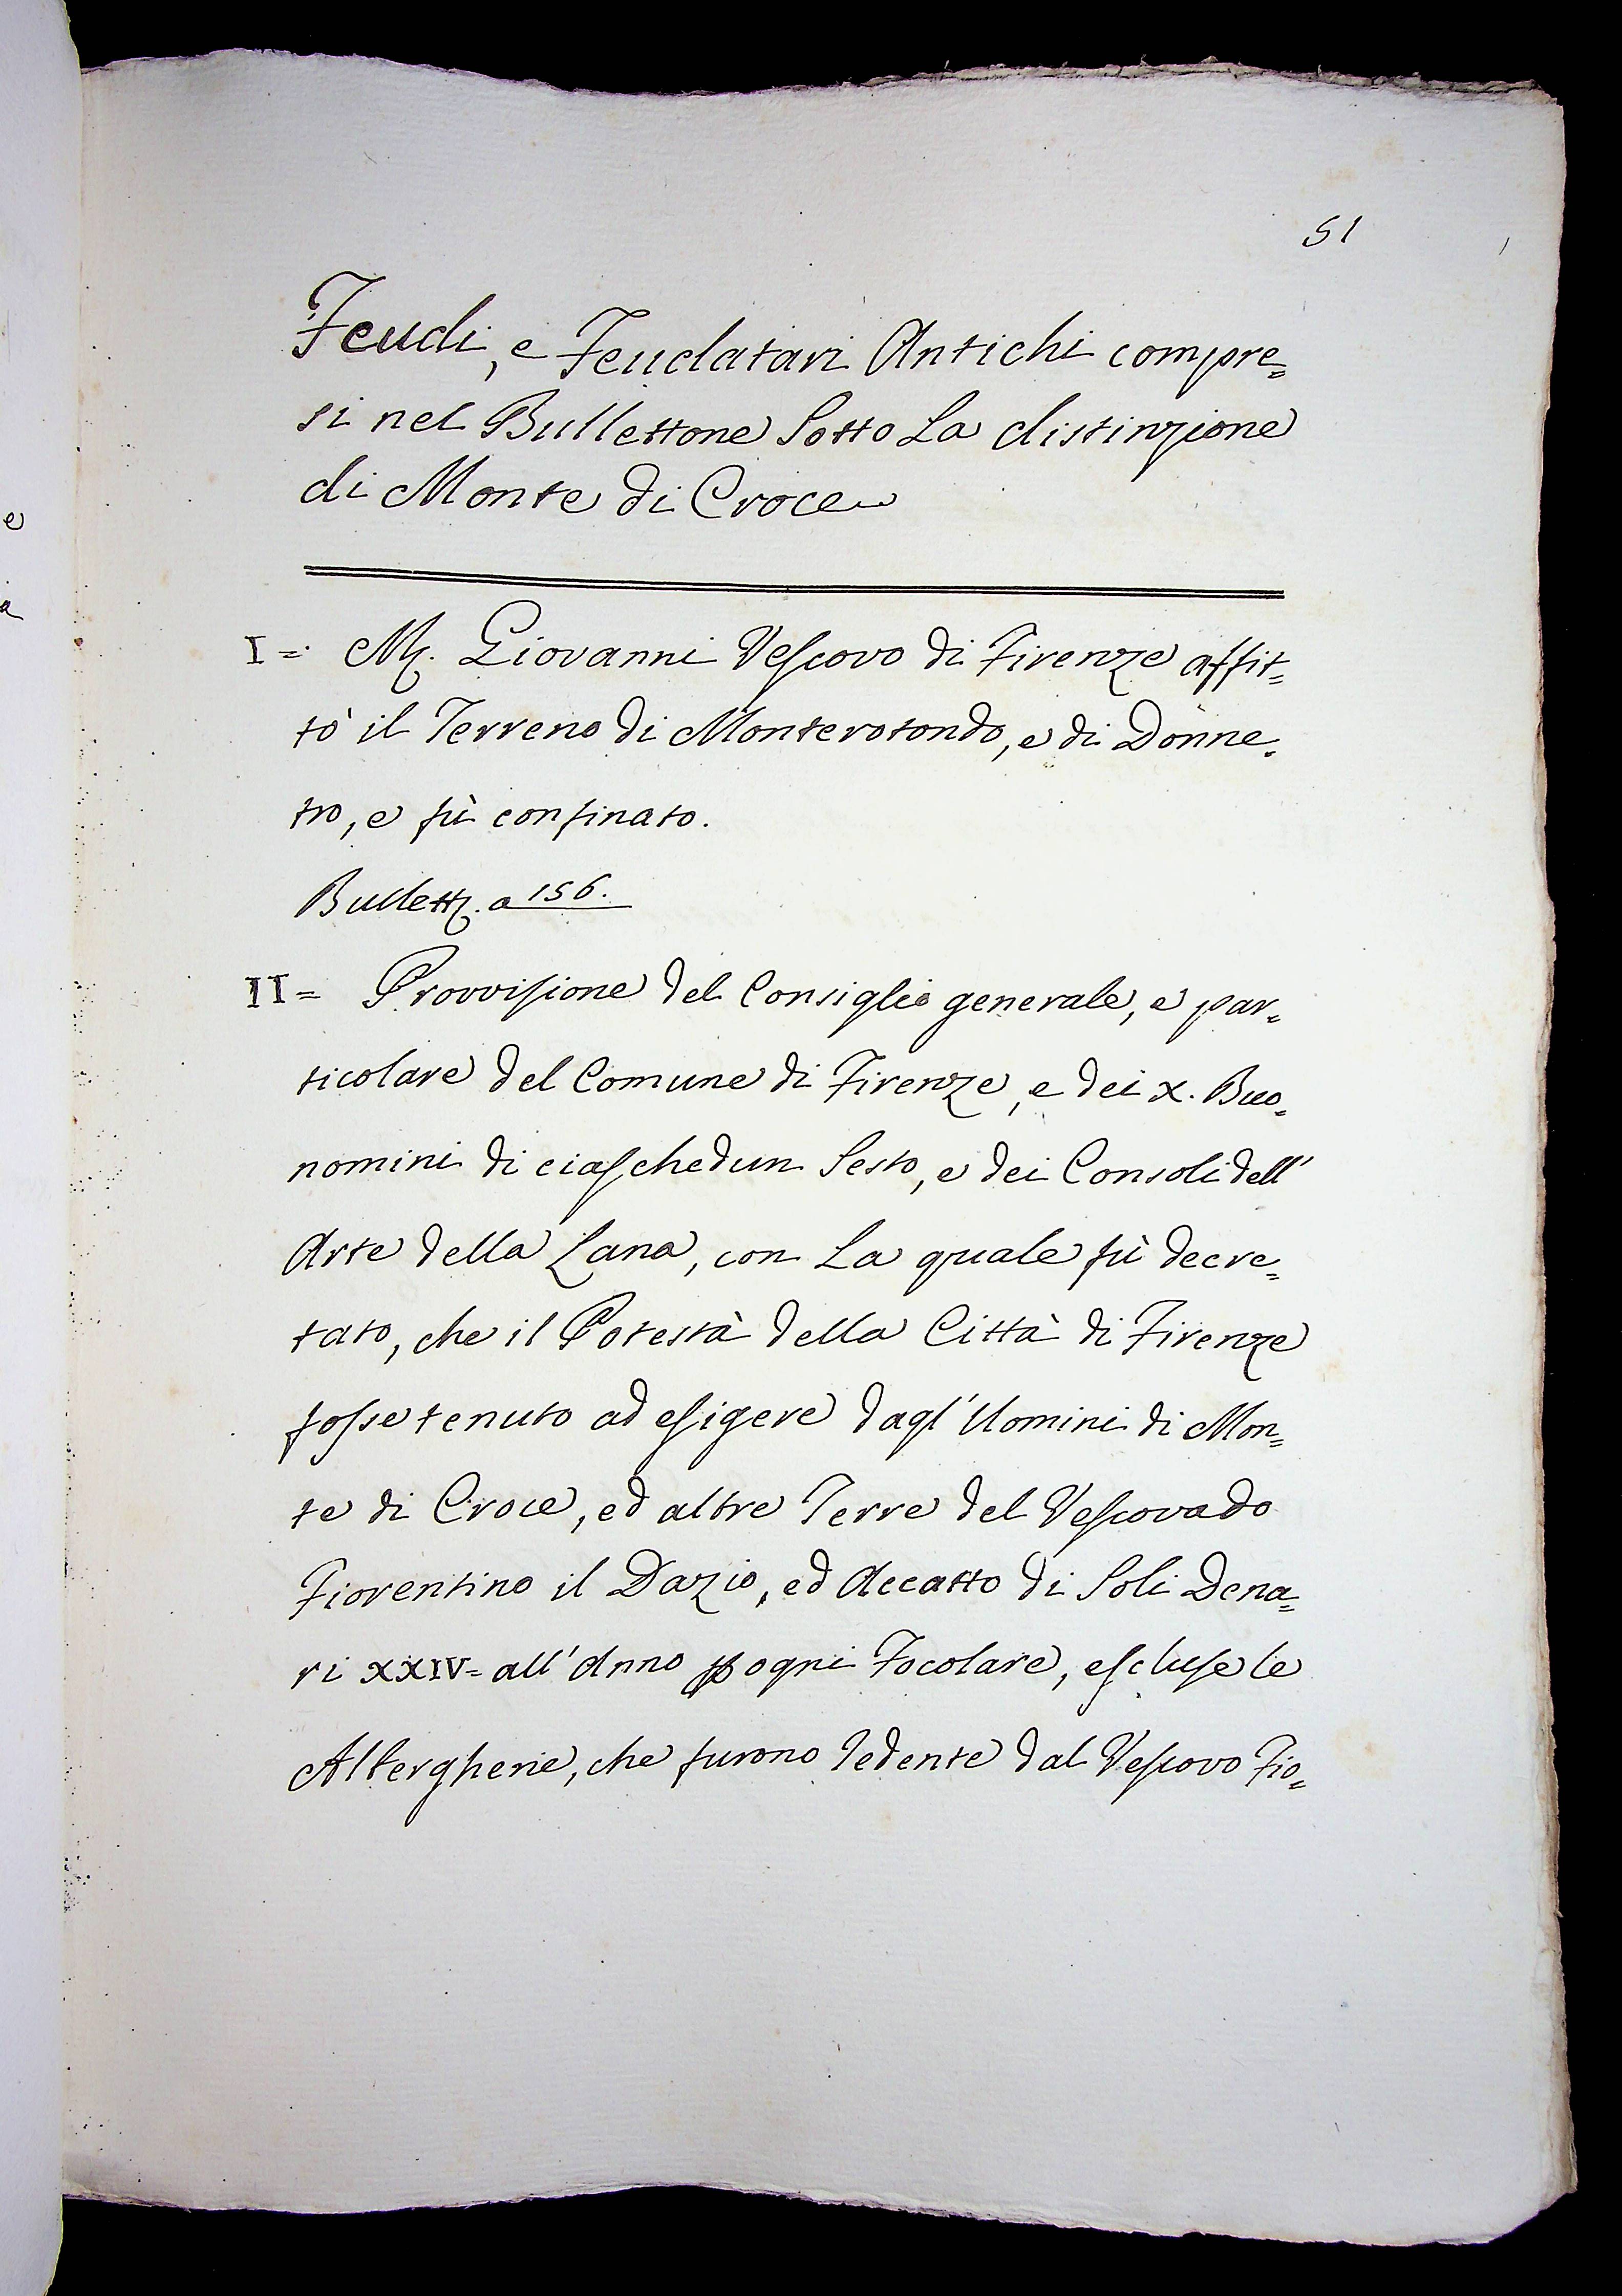 51
Feudi, e Feudatari Antichi compre=
si nel Bullettone Sotto La distinzione
di Monte di Croce
I = M. Giovanni Vescovo di Firenze affit=
tò il Terreno di Monterotondo, e di Donne=
tro, e fù confinato.
Bullett. a 156.
II = Provvisione del Consiglio generale, e par=
ticolare del Comune di Firenze, e dei X. Buo=
nomini di ciaschedun Sesto, e dei Consoli dell'
Arte della Lana, con La quale fù decre=
tato, che il Potestà della Città di Firenze
fosse tenuto ad esigere dagl' Uomini di Mon=
te di Croce, ed altre Terre del Vescovado
Fiorentino il Dazio, ed Accatto di Soli Dena=
ri XXIV= all' Anno p ogni Focolare, escluse le
Albergherie, che furono vedente dal Vescovo Fio=
e
a